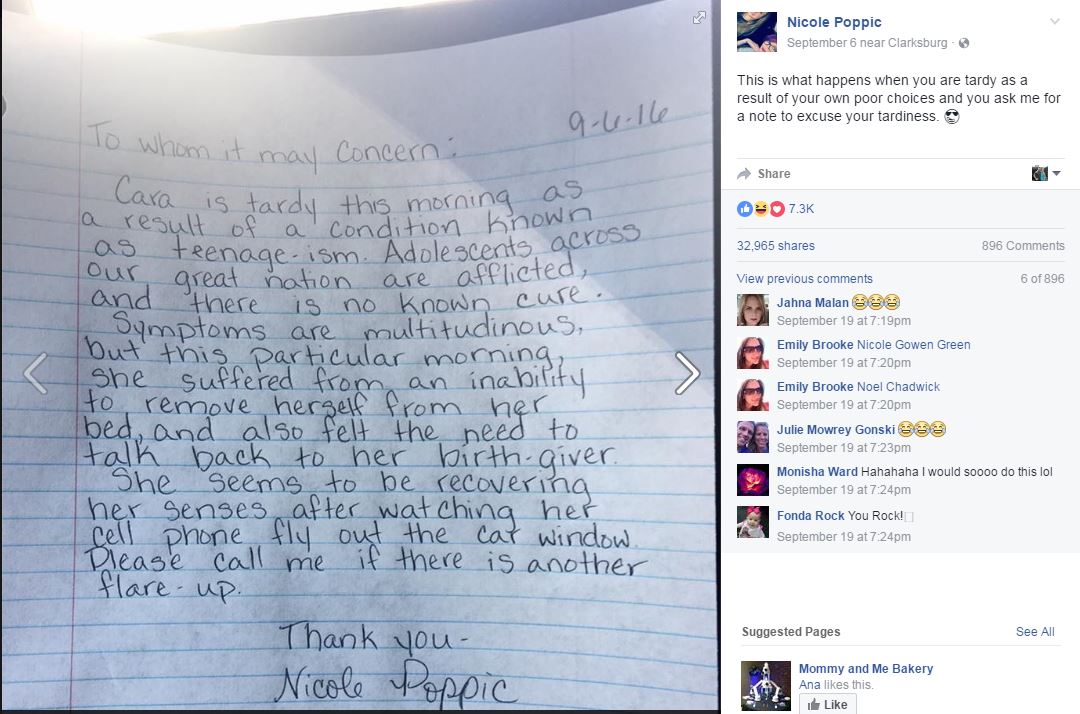 9-6-16
To whom it may Concern:
Cara is tardy this morning as
a result of a condition known
as teenage-ism. Adolescents across
our great nation are afflicted,
and there is no known cure.
Symptoms are multitudinous,
but this particular morning,
she suffered from an inability
to remove herself from her
bed, and also felt the need to
talk back to her birth-giver.
She seems to be recovering
her senses after watching her
cell phone fly out the car window.
Please call me if there is another
flare-up.
Thank you-
Nicole Poppic
Nicole Poppic
September 6 near Clarksburg ·
This is what happens when you are tardy as a
result of your own poor choices and you ask me for
a note to excuse your tardiness. 😎
Share
7.3K
32,965 shares 896 Comments
View previous comments 6 of 896
Jahna Malan 😂😂😂
September 19 at 7:19pm
Emily Brooke Nicole Gowen Green
September 19 at 7:20pm
Emily Brooke Noel Chadwick
September 19 at 7:20pm
Julie Mowrey Gonski 😂😂😂
September 19 at 7:23pm
Monisha Ward Hahahaha I would soooo do this lol
September 19 at 7:24pm
Fonda Rock You Rock!
September 19 at 7:24pm
Suggested Pages See All
Mommy and Me Bakery
Ana likes this.
Like